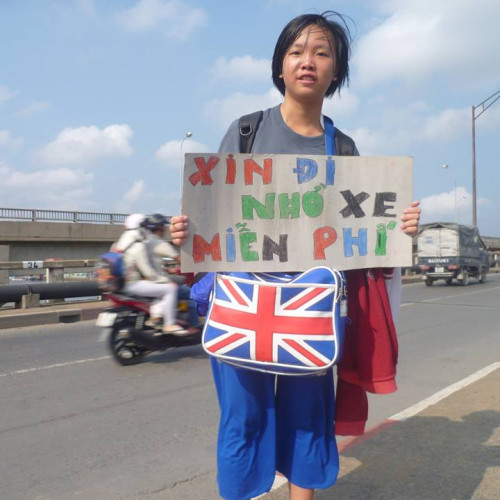 XIN ĐI
NHỜ XE
MIỄN PHÍ
SUZUKI